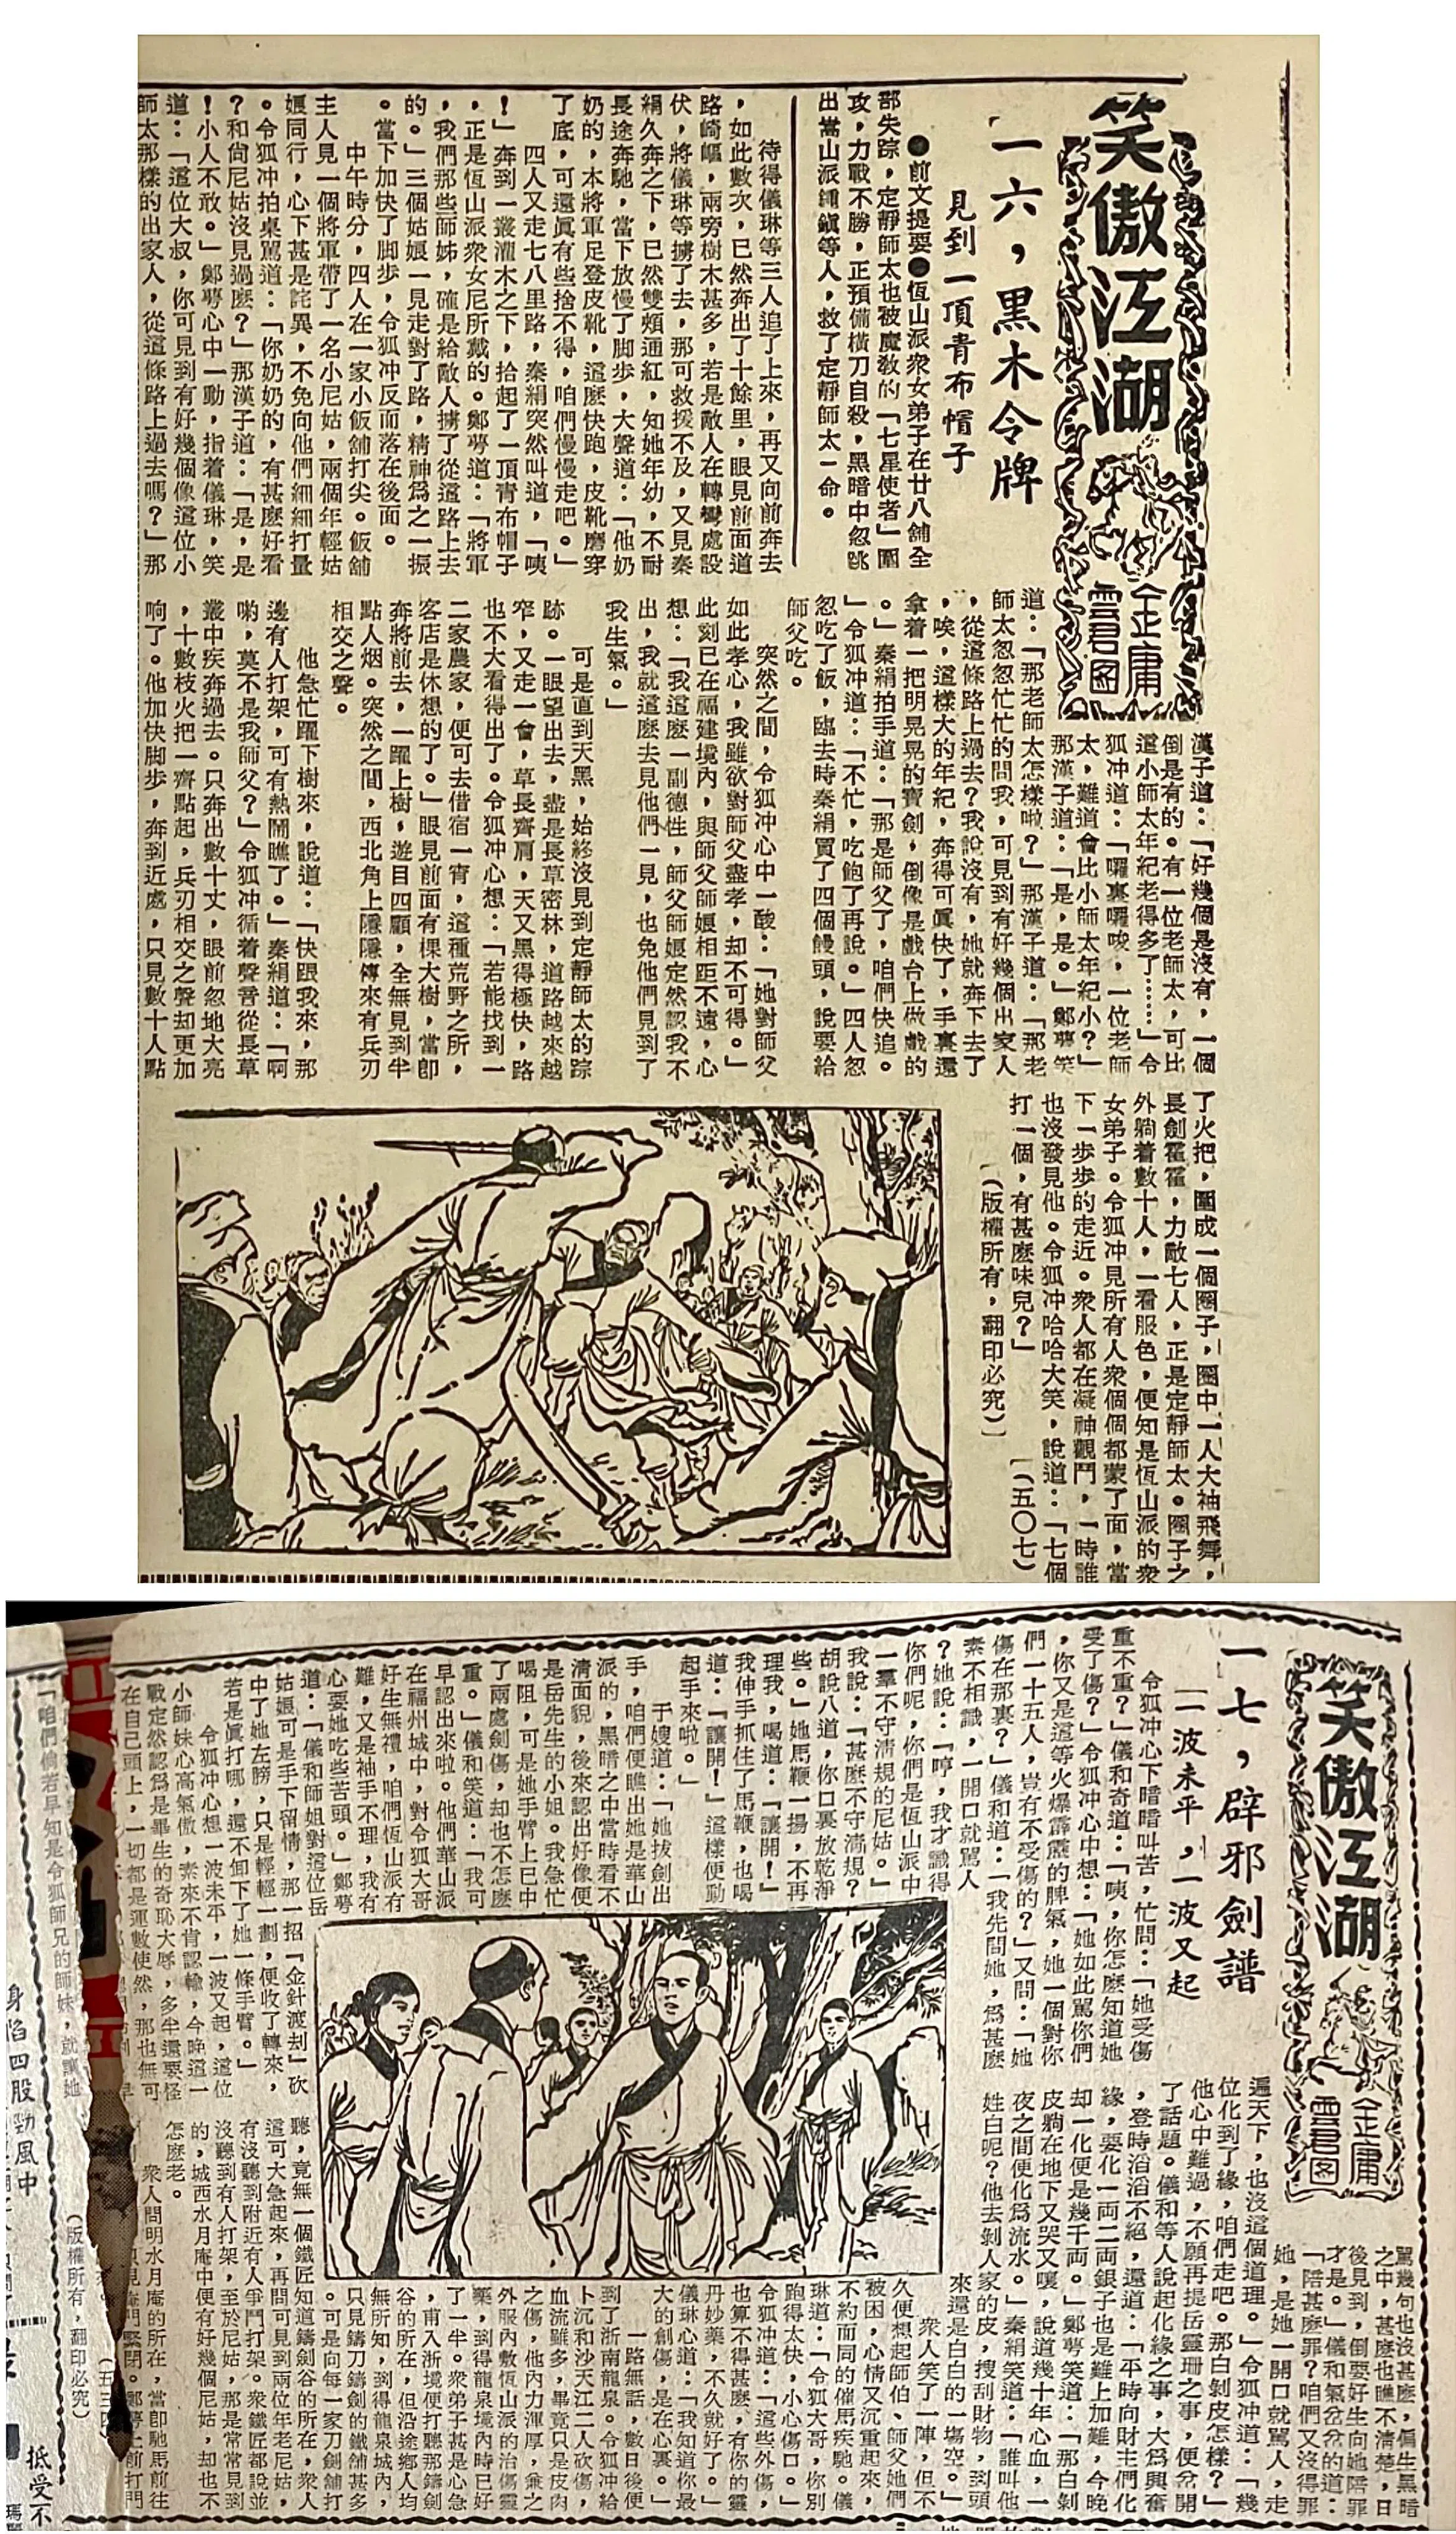 笑傲江湖
金庸
雲君図
一六，黑木令牌
見到一頂青布帽子
●前文提要●恆山派衆女弟子在廿八舖全
部失踪，定靜師太也被魔敎的「七星使者」圍
攻，力戰不勝，正預備橫刀自殺，黑暗中忽跳
出嵩山派鍾鎭等人，救了定靜師太一命。
待得儀琳等三人追了上來，再又向前奔去
，如此數次，已然奔出了十餘里，眼見前面道
路崎嶇，兩旁樹木甚多，若是敵人在轉彎處設
伏，將儀琳等擄了去，那可救援不及，又見秦
絹久奔之下，已然雙頰通紅，知她年幼，不耐
長途奔馳，當下放慢了脚步，大聲道：「他奶
奶的，本將軍足登皮靴，這麽快跑，皮靴磨穿
了底，可還眞有些捨不得，咱們慢慢走吧。」
四人又走七八里路，秦絹突然叫道，「咦
！」奔到一叢灌木之下，拾起了一頂青布帽子
，正是恆山派衆女尼所戴的。鄭萼道：「將軍
，我們那些師姊，確是給敵人擄了從這路上去
的。」三個姑娘一見走對了路，精神爲之一振
。當下加快了脚步，令狐冲反而落在後面。
中午時分，四人在一家小飯舖打尖。飯舖
主人見一個將軍帶了一名小尼姑，兩個年輕姑
娘同行，心下甚是詫異，不免向他們細細打量
。令狐冲拍桌駡道：「你奶奶的，有甚麽好看
？和尙尼姑沒見過麽？」那漢子道：「是，是
！小人不敢。」鄭萼心中一動，指着儀琳，笑
道：「這位大叔，你可見到有好幾個像這位小
師太那樣的出家人，從這條路上過去嗎？」那
漢子道：「好幾個是沒有，一個
倒是有的。有一位老師太，可比
這小師太年紀老得多了……」令
狐冲道：「囉裏囉唆，一位老師
太，難道會比小師太年紀小？」
那漢子道：「是，是。」鄭萼笑
道：「那老師太怎樣啦？」那漢子道：「那老
師太怱怱忙忙的問我，可見到有好幾個出家人
，從這條路上過去？我說沒有，她就奔下去了
，唉，這樣大的年紀，奔得可眞快了，手裏還
拿着一把明晃晃的寶劍，倒像是戲台上做戲的
。」秦絹拍手道：「那是師父了，咱們快追。
」令狐冲道：「不忙，吃飽了再說。」四人怱
怱吃了飯，臨去時秦絹買了四個饅頭，說要給
師父吃。
突然之間，令狐冲心中一酸：「她對師父
如此孝心，我雖欲對師父盡孝，却不可得。」
此刻已在福建境內，與師父師娘相距不遠，心
想：「我這麽一副德性，師父師娘定然認我不
出，我就這麽去見他們一見，也免他們見到了
我生氣。」
可是直到天黑，始終沒見到定靜師太的踪
跡。一眼望出去，盡是長草密林，道路越來越
窄，又走一會，草長齊肩，天又黑得極快，路
也不大看得出了。令狐冲心想：「若能找到一
二家農家，便可去借宿一宵，這種荒野之所，
客店是休想的了。」眼見前面有棵大樹，當卽
奔將前去，一躍上樹，遊目四顧，全無見到半
點人烟。突然之間，西北角上隱隱傳來有兵刃
相交之聲。
他急忙躍下樹來，說道：「快跟我來，那
邊有人打架，可有熱鬧瞧了。」秦絹道：「啊
喲，莫不是我師父？」令狐冲循着聲音從長草
叢中疾奔過去。只奔出數十丈，眼前忽地大亮
，十數枝火把一齊點起，兵刃相交之聲却更加
响了。他加快脚步，奔到近處，只見數十人點
了火把，圍成一個圈子，圈中一人大袖飛舞，
長劍霍霍，力敵七人，正是定靜師太。圈子之
外躺着數十人，一看服色，便知是恆山派的衆
女弟子。令狐冲見所有人衆個個都蒙了面，當
下一步步的走近。衆人都在凝神觀鬥，一時誰
也沒發見他。令狐冲哈哈大笑，說道：「七個
打一個，有甚麽味兒？」　（五〇七）
（版權所有，翻印必究）
笑傲江湖
金庸
雲君図
一七，辟邪劍譜
一波未平，一波又起
令狐冲心下暗暗叫苦，忙問：「她受傷
重不重？」儀和奇道：「咦，你怎麽知道她
受了傷？」令狐冲心中想：「她如此駡你們
，你又是這等火爆霹靂的脾氣，她一個對你
們一十五人，豈有不受傷的？」又問：「她
傷在那裏？」儀和道：「我先問她，爲甚麽
素不相識，一開口就駡人
？她說：「哼，我才識得
你們呢，你們是恆山派中
一羣不守清規的尼姑。」
我說：「甚麽不守清規？
胡說八道，你口裏放乾淨
些。」她馬鞭一揚，不再
理我，喝道：「讓開！」
我伸手抓住了馬鞭，也喝
道：「讓開！」這樣便動
起手來啦。」
于嫂道：「她拔劍出
手，咱們便瞧出她是華山
派的，黑暗之中當時看不
淸面貌，後來認出好像便
是岳先生的小姐。我急忙
喝阻，可是她手臂上已中
了兩處劍傷，却也不怎麽
重。」儀和笑道：「我可
早認出來啦。他們華山派
在福州城中，對令狐大哥
好生無禮，咱們恆山派有
難，又是袖手不理，我有
心要她吃些苦頭。」鄭萼
道：「儀和師姐對這位岳
姑娘可是手下留情，那一招『金針渡刦』砍
中了她左膀，只是輕輕一劃，便收了轉來，
若是眞打哪，還不卸下了她一條手臂。」
令狐冲心想一波未平，一波又起，這位
小師妹心高氣傲，素來不肯認輸，今晚這一
戰定然認爲是畢生的奇恥大辱，多半還要怪
在自己頭上，一切都是運數使然，那也無可
「咱們倘若早知是令狐師兄的師妹，就讓她
駡幾句也沒甚麽，偏生黑暗
之中，甚麽也瞧不淸楚，日
後見到，倒要好生向她陪罪
才是。」儀和氣岔岔的道：
「陪甚麽罪？咱們又沒得罪
她，是她一開口就駡人，走
遍天下，也沒這個道理。」令狐冲道：「幾
位化到了緣，咱們走吧。那白剝皮怎樣？」
他心中難過，不願再提岳靈珊之事，便岔開
了話題。儀和等人說起化緣之事，大爲興奮
，登時滔滔不絕，還道：「平時向財主們化
緣，要化一兩二兩銀子也是難上加難，今晚
却一化便是幾千兩。」鄭萼笑道：「那白剝
皮躺在地下又哭又嚷，說道幾十年心血，一
夜之間便化爲流水。」秦絹笑道：「誰叫他
姓白呢？他去剝人家的皮，搜刮財物，到頭
來還是白白的一塲空。」
衆人笑了一陣，但不
久便想起師伯、師父她們
被困，心情又沉重起來，
不約而同的催馬疾馳。儀
琳道：「令狐大哥，你別
跑得太快，小心傷口。」
令狐冲道：「這些外傷，
也算不得甚麽，有你的靈
丹妙藥，不久就好了。」
儀琳心道：「我知道你最
大的創傷，是在心裏。」
一路無話，數日後便
到了浙南龍泉。令狐冲給
卜沉和沙天江二人砍傷，
血流雖多，畢竟只是皮肉
之傷，他內力渾厚，兼之
外服內敷恆山派的治傷靈
藥，到得龍泉境內時已好
了一半。衆弟子甚是心急
，甫入浙境便打聽那鑄劍
谷的所在，但沿途鄉人均
無所知，到得龍泉城內，
只見鑄刀鑄劍的鐵舖甚多
。可是向每一家刀劍舖打
聽，竟無一個鐵匠知道鑄劍谷的所在，衆人
這可大急起來，再問可見到兩位年老尼姑，
有沒聽到附近有人爭鬥打架。衆鐵匠都說並
沒聽到有人打架，至於尼姑，那是常常見到
的，城西水月庵中便有好幾個尼姑，却也不
怎麽老。
衆人問明水月庵的所在，當卽馳馬前往
（版權所有，翻印必究）
身陷四股勁風中
抵受不